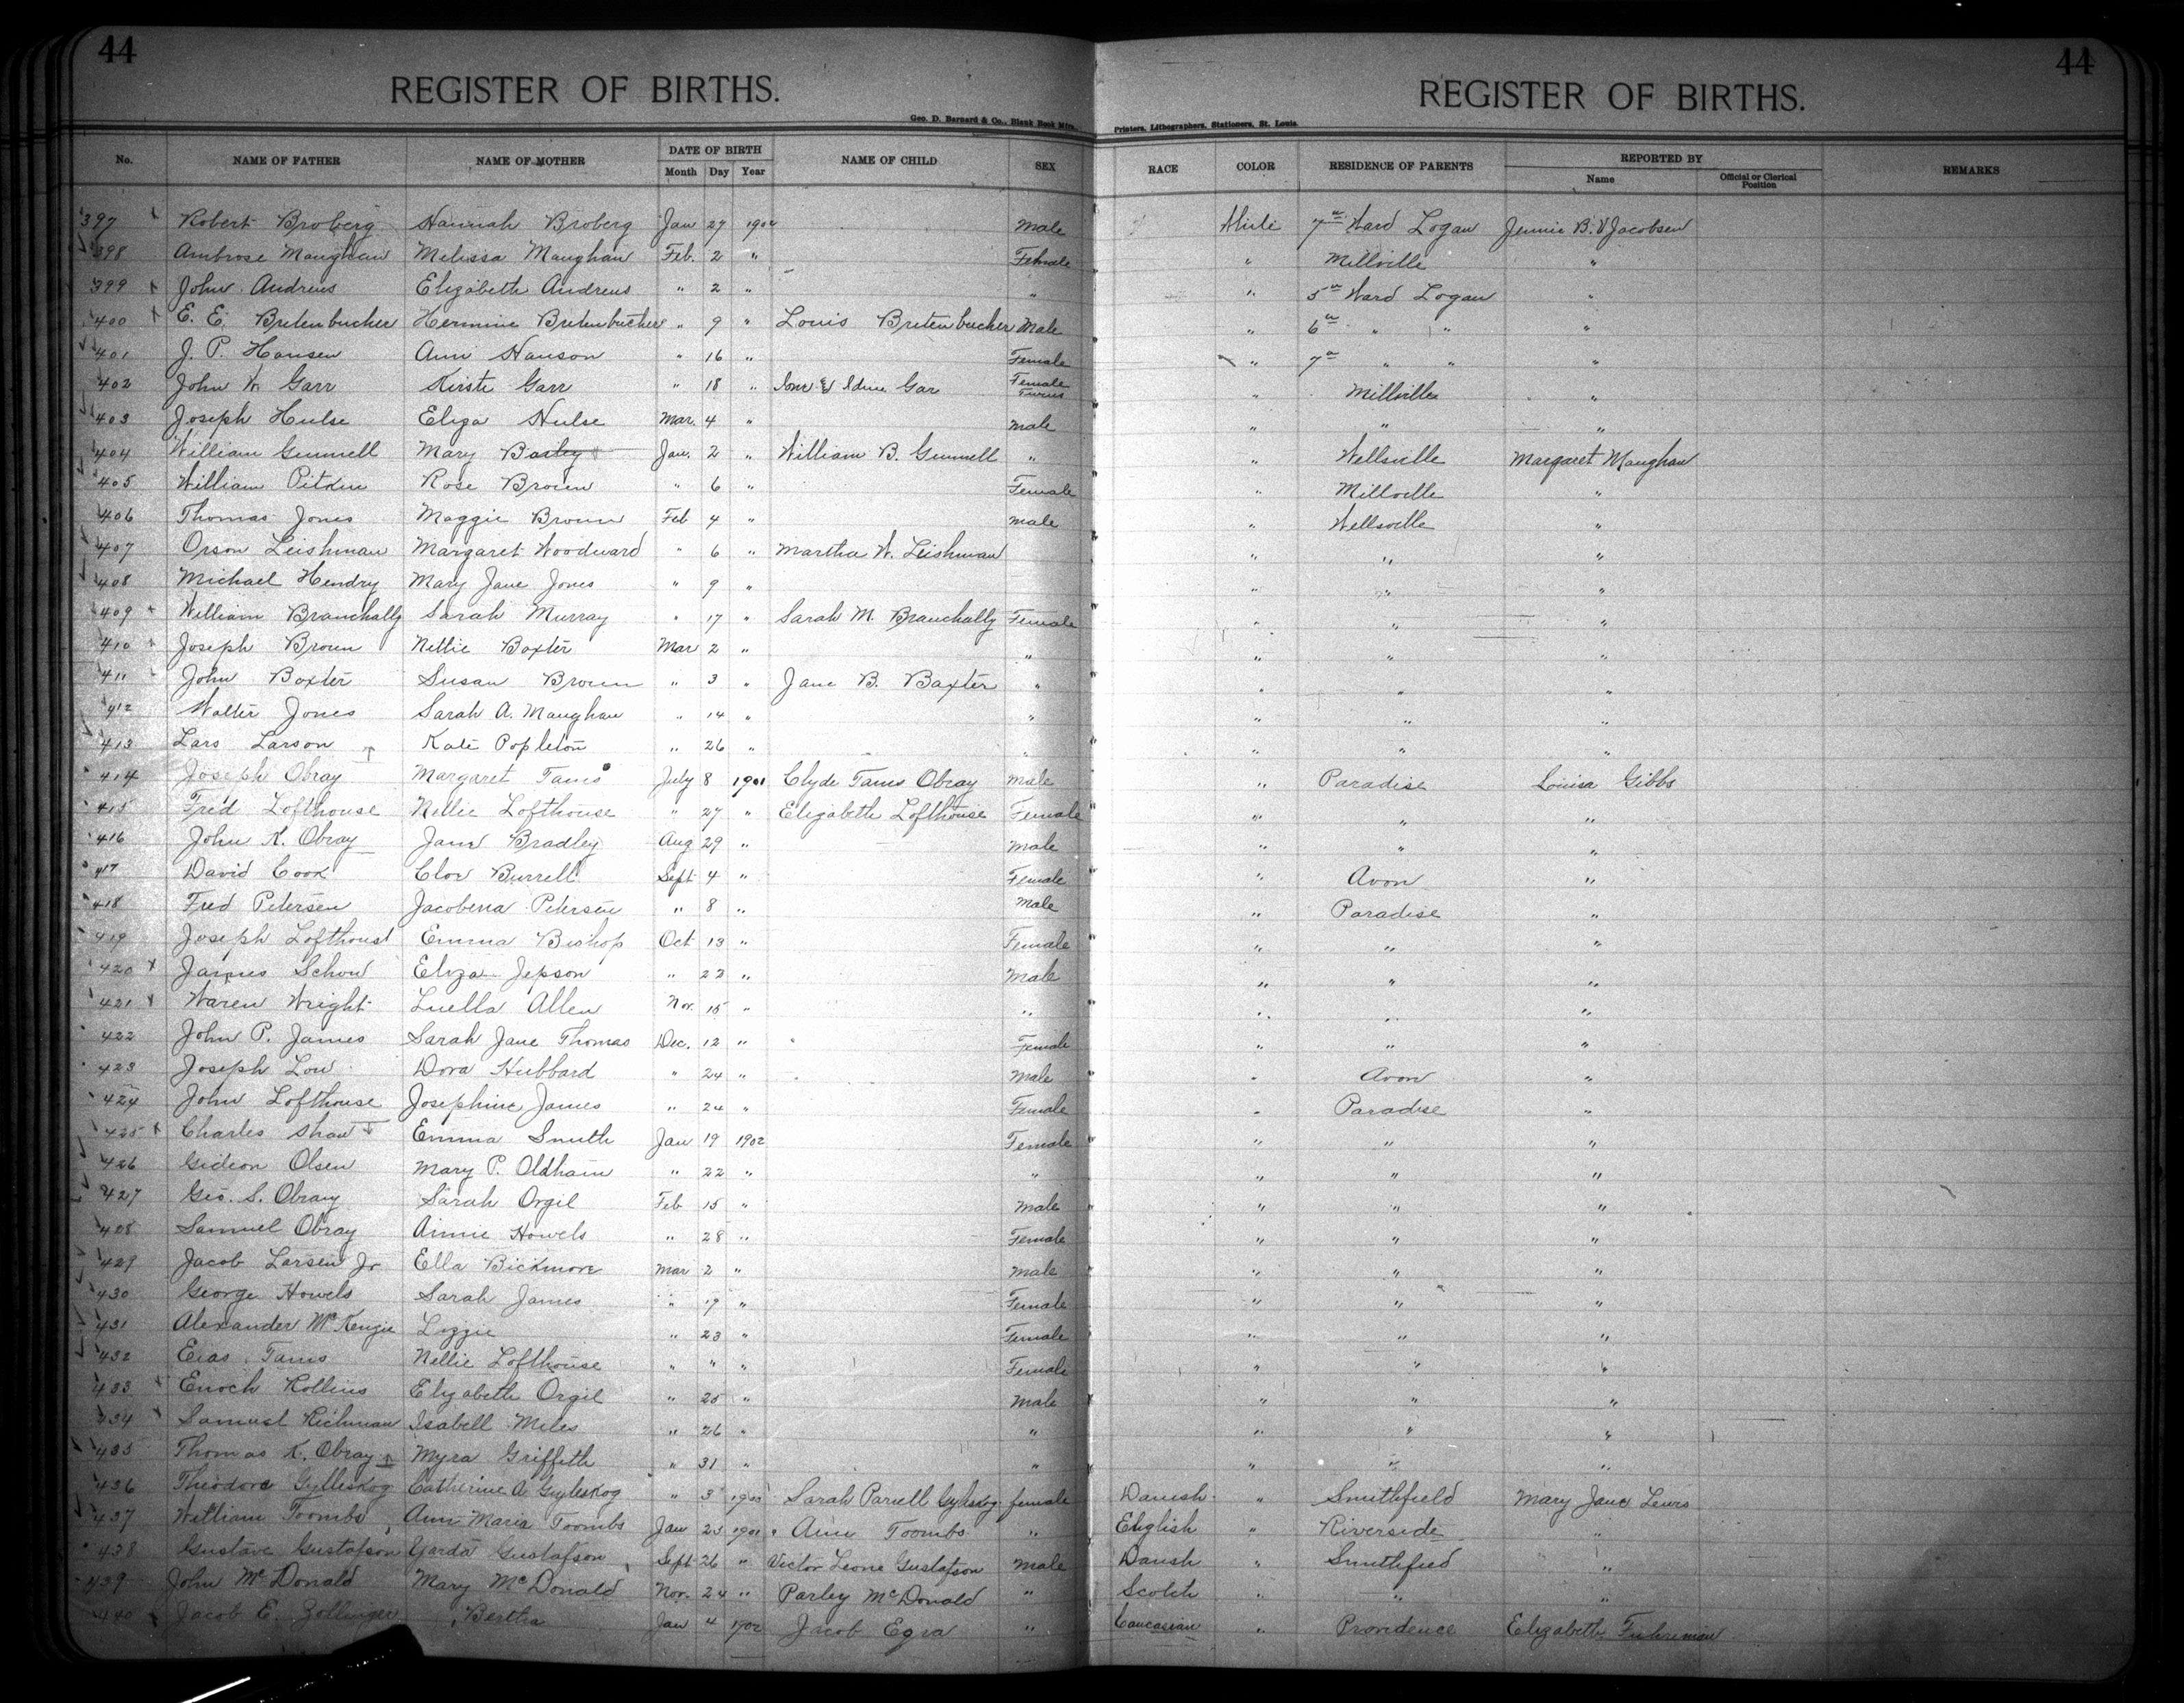 44 44
REGISTER OF BIRTHS. REGISTER OF BIRTHS.
Geo. D. Barnard & Co., Blank Book Mfrs., Printers, Lithographers, Stationers, St. Louis.
No. NAME OF FATHER NAME OF MOTHER DATE OF BIRTH Month Day Year NAME OF CHILD SEX RACE COLOR RESIDENCE OF PARENTS REPORTED BY Name Official or Clerical Position REMARKS
397 Robert Broberg Hannah Broberg Jan 27 1902 Male White 7th Ward Logan Jennie B. Jacobsen
398 Ambrose Maughan Melissa Maughan Feb. 2 " Female " Millville "
399 John Andrews Elizabeth Andrews " 2 " " " 5th Ward Logan "
400 E. E. Bretenbucher Hermine Bretenbucher " 9 " Louis Bretenbucher Male " 6th " " "
401 J. P. Hansen Ann Hanson " 16 " Female " 7th " " "
402 John W. Garr Kirste Garr " 18 " & Gar Female Twins " Millville "
403 Joseph Hulse Eliza Hulse Mar. 4 " Male " " "
404 William Gunnell Mary Baxley Jan. 2 " William B. Gunnell " " Wellsville Margaret Maughan
405 William Pitkin Rose Brown " 6 " Female " Millville "
406 Thomas Jones Maggie Brown Feb 4 " Male " Wellsville "
407 Orson Leishman Margaret Woodward " 6 " Martha W. Leishman " " "
408 Michael Hendry Mary Jane Jones " 9 " " " "
409 William Branchally Sarah Murray " 17 " Sarah M. Branchally Female " " "
410 Joseph Brown Nettie Baxter Mar 2 " " " " "
411 John Baxter Susan Brown " 3 " Jane B. Baxter " " " "
412 Walter Jones Sarah A. Maughan " 14 " " " " "
413 Lars Larson Kate Popleton " 26 " " " " "
414 Joseph Obray Margaret Tams July 8 1901 Clyde Tams Obray Male " Paradise Louisa Gibbs
415 Fred Lofthouse Nellie Lofthouse " 27 " Elizabeth Lofthouse Female " " "
416 John K. Obray Jane Bradley Aug 29 " Male " " "
417 David Cook Cloe Burrell Sept 4 " Female " Avon "
418 Fred Petersen Jacobena Petersen " 8 " Male " Paradise "
419 Joseph Lofthoust Emma Bishop Oct 13 " Female " " "
420 James Schow Eliza Jepson " 23 " Male " " "
421 Waren Wright Luella Allen Nov. 15 " " " " "
422 John P. James Sarah Jane Thomas Dec. 12 " Female " " "
423 Joseph Low Dora Hubbard " 24 " Male " Avon "
424 John Lofthouse Josephine James " 24 " Female " Paradise "
425 Charles Shaw Emma Smith Jan 19 1902 Female " " "
426 Gideon Olsen Mary P. Oldham " 22 " " " " "
427 Geo. S. Obray Sarah Orgil Feb 15 " Male " " "
428 Samuel Obray Annie Howels " 28 " Female " " "
429 Jacob Larsen Jr Ella Bickmore Mar 2 " Male " " "
430 George Howels Sarah James " 19 " Female " " "
431 Alexander McKenzie Lizzie " 23 " Female " " "
432 Tams Nellie Lofthouse " " " Female " " "
433 Enoch Rollins Elizabeth Orgil " 25 " Male " " "
434 Samuel Richman Isabell Miles " 26 " " " " "
435 Thomas K. Obray Myra Griffeth " 31 " " " " "
436 Theodore Gylleskog Catherine A Gyleskog " 3 Sarah Parsell Gyleskog female Danish " Smithfield Mary Jane Lewis
437 William Toombs Ann Maria Toombs Jan 23 1901 Ann Toombs " English " Riverside "
438 Gustave Gustafson Yarda Gustafson Sept 26 " Victor Leone Gustafson Male Danish " Smithfied "
439 John McDonald Mary McDonald Nov. 24 " Parley McDonald " Scotch " " "
440 Jacob E. Zollinger Bertha Jan 4 1902 Jacob Egra " Caucasian " Providence Elizabeth Fuhriman